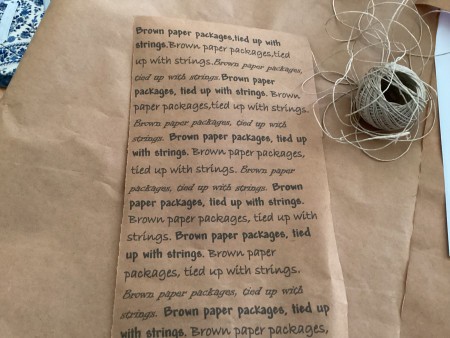 Brown paper packages,tied up with
strings.Brown paper packages,tied
up with strings.Brown paper packages,
tied up with strings.Brown paper
packages, tied up with strings.Brown
paper packages,tied up with strings.
Brown paper packages, tied up with
strings. Brown paper packages, tied up
with strings. Brown paper packages,
tied up with strings. Brown paper
packages, tied up with strings. Brown
paper packages, tied up with strings.
Brown paper packages, tied up with
strings. Brown paper packages, tied
up with strings. Brown paper
packages, tied up with strings.
Brown paper packages, tied up with
strings. Brown paper packages, tied up
with strings. Brown paper packages,